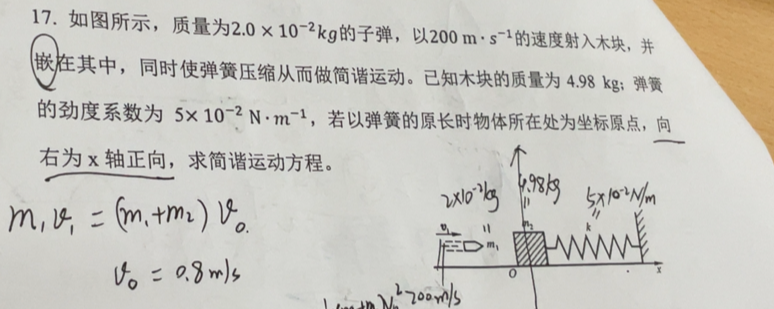 17. 如图所示，质量为2.0 × 10⁻²kg的子弹，以200 m · s⁻¹的速度射入木块，并
嵌在其中，同时使弹簧压缩从而做简谐运动。已知木块的质量为 4.98 kg；弹簧
的劲度系数为 5× 10⁻² N · m⁻¹，若以弹簧的原长时物体所在处为坐标原点，向
右为 x 轴正向，求简谐运动方程。
m₁v₁ = (m₁+m₂) v₀.
v₀ = 0.8m/s
2×10⁻²kg
4.98kg
5×10⁻²N/m
m₁
m₂
k
O
x
200m/s